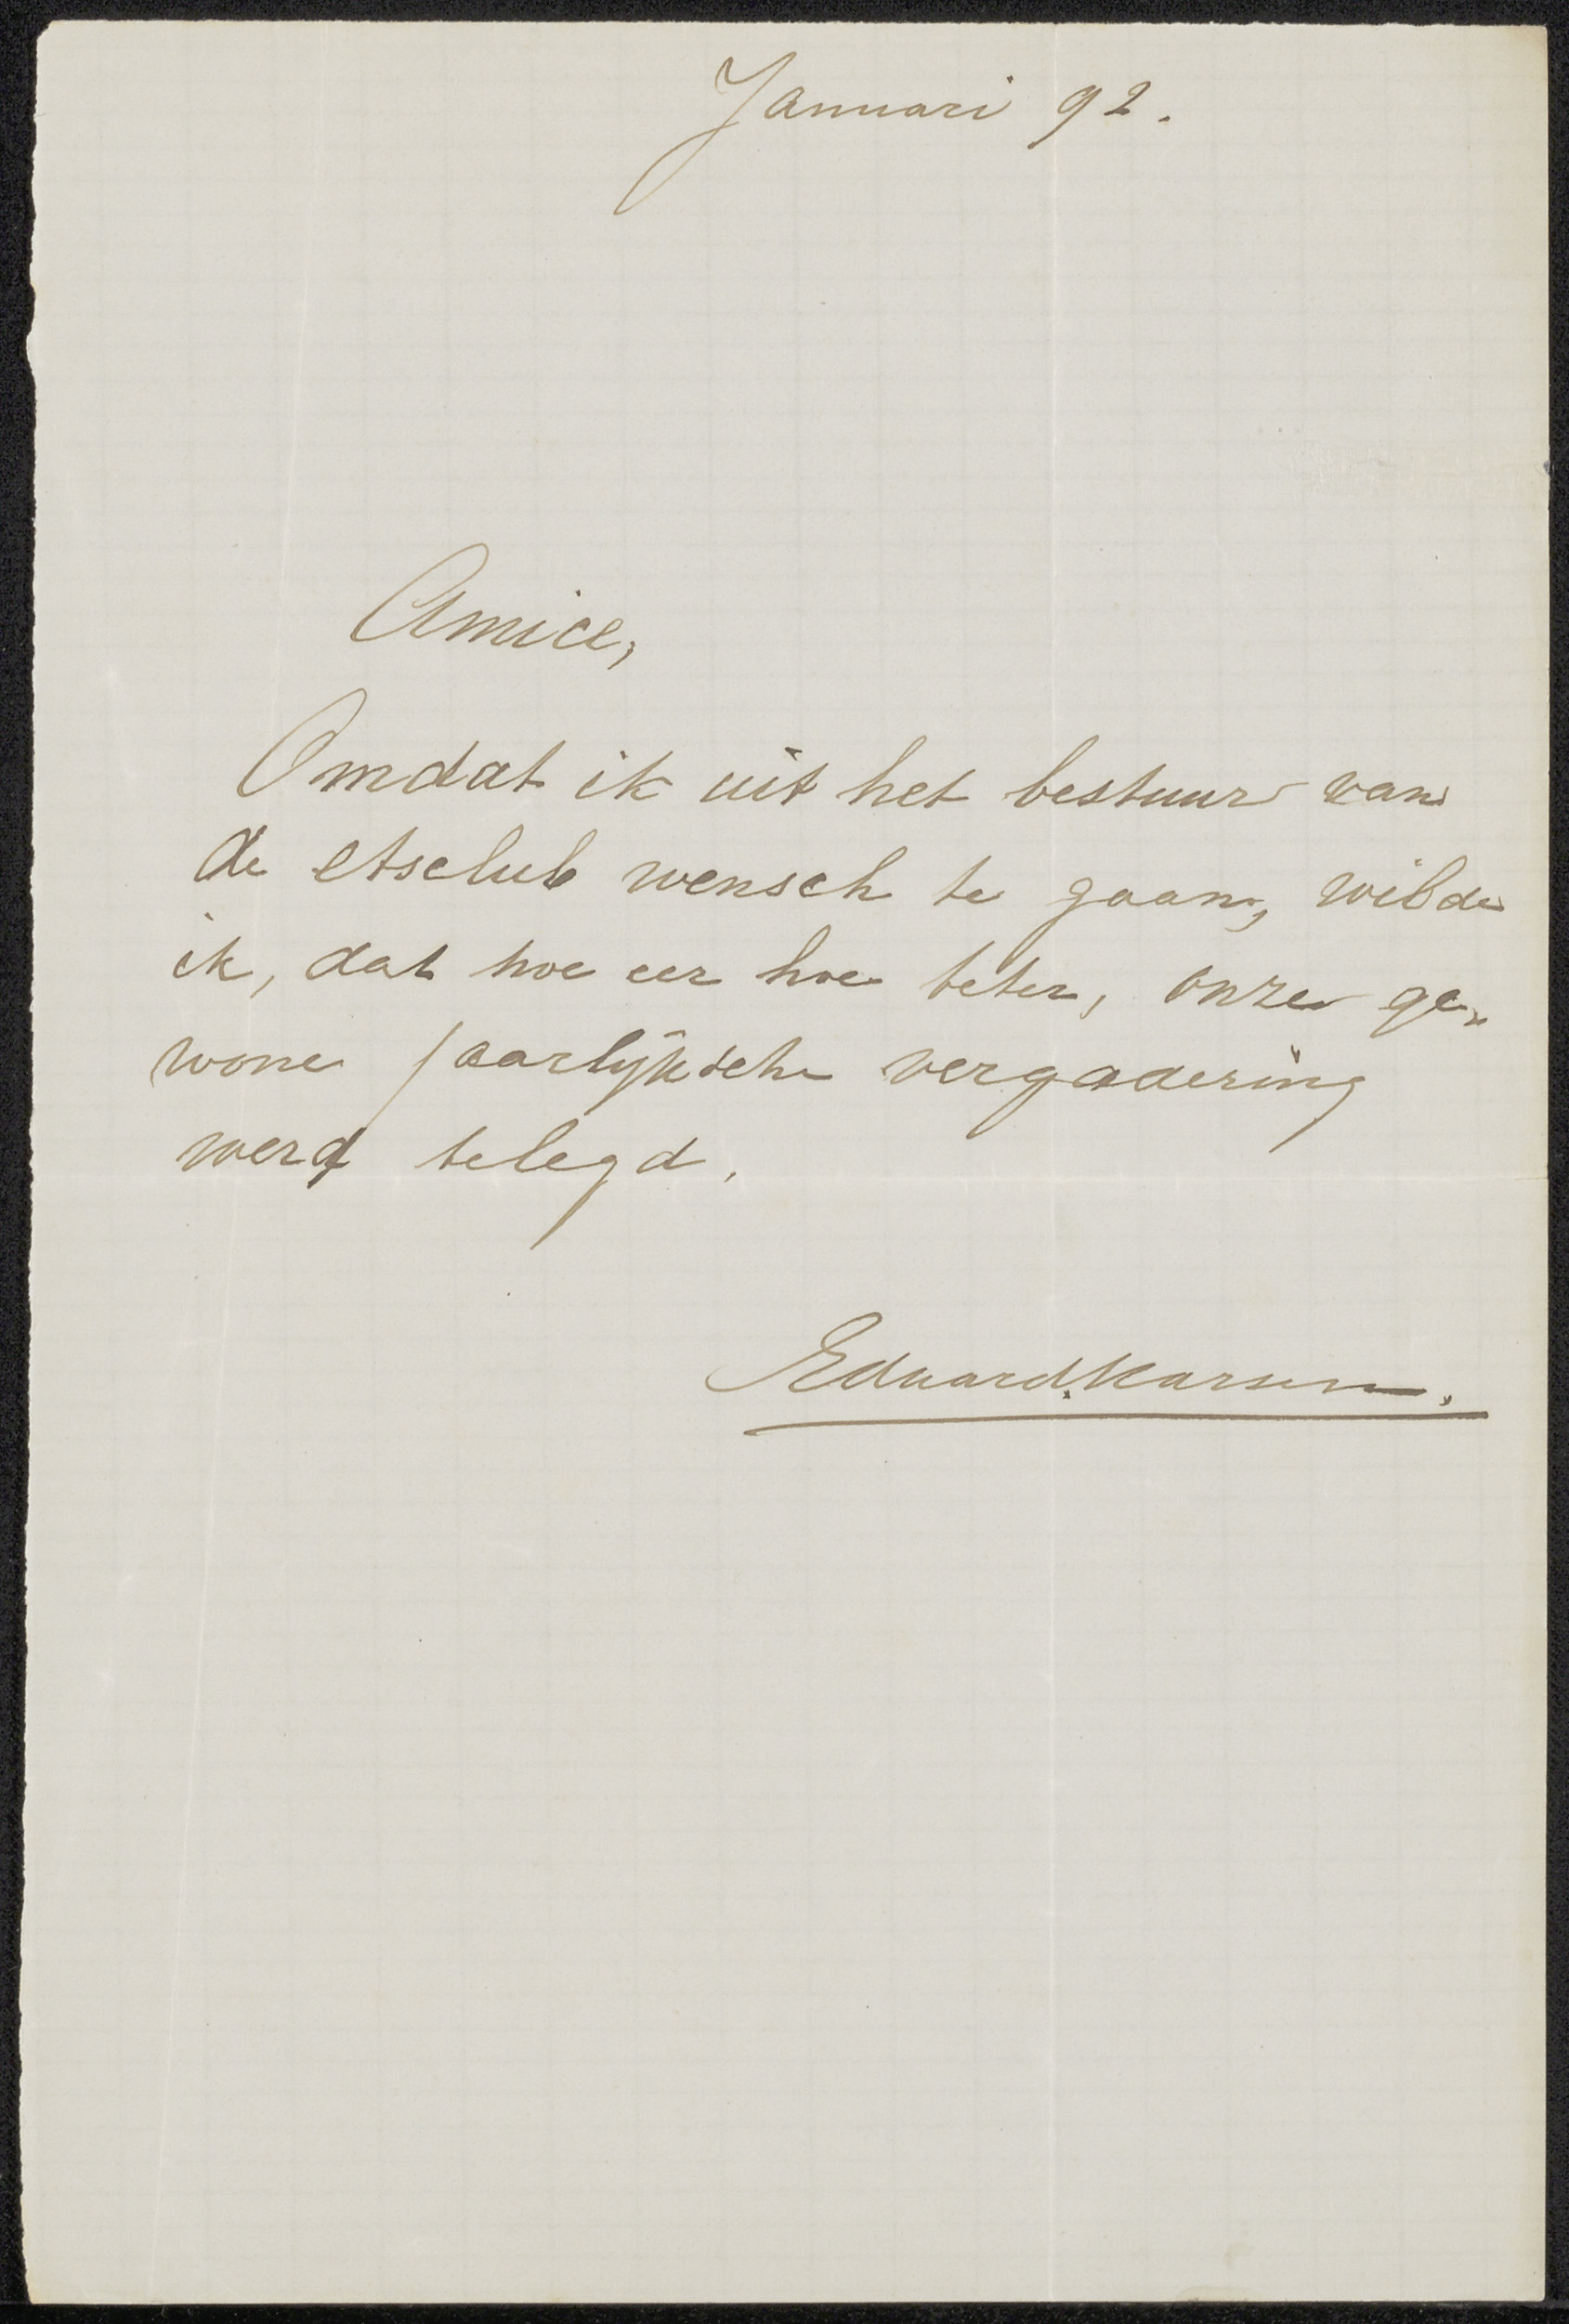 Januari 92.
Amice,
Omdat ik uit het bestuur van
de etsclub wensch te gaan, wilde
ik, dat hoe eer hoe beter, onze ge„
wone jaarlijksche vergadering
werd belegd.
Eduard Karsen.